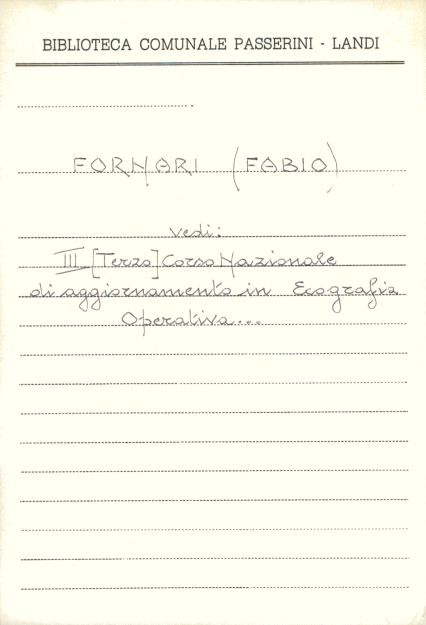 BIBLIOTECA COMUNALE PASSERINI - LANDI
FORNARI (FABIO)
vedi:
III [Terzo] Corso Nazionale
di aggiornamento in Ecografia
Operativa...